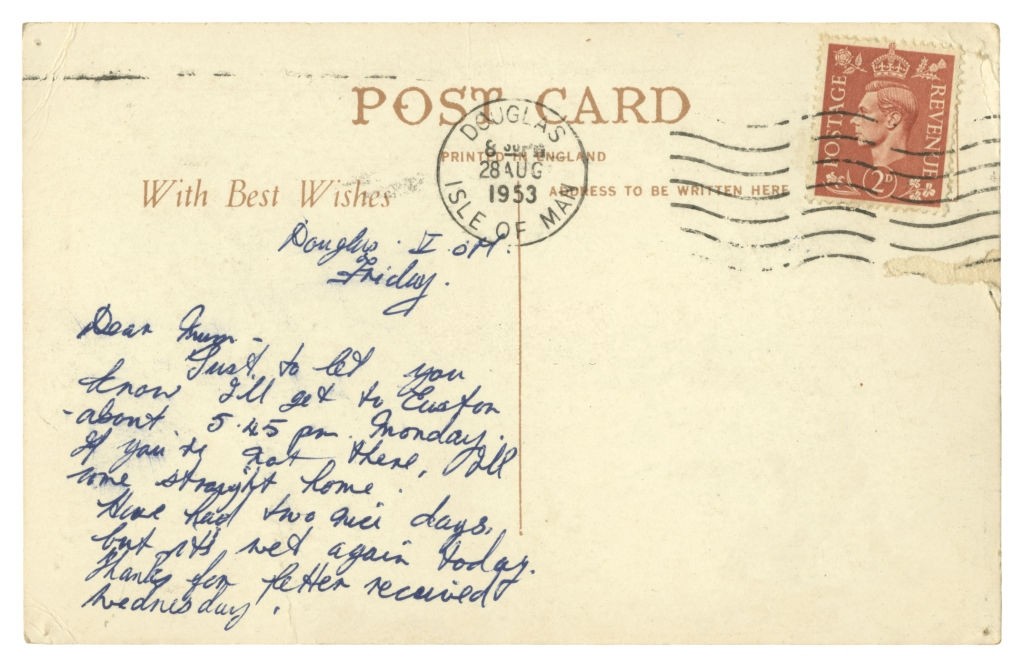 POST CARD
PRINTED IN ENGLAND
With Best Wishes
ADDRESS TO BE WRITTEN HERE
DOUGLAS
8
28 AUG
1953
ISLE OF MAN
POSTAGE
REVENUE
2D
Douglas. I.oM.
Friday.
Dear Mum -
Just to let you
know I'll get to Euston
about 5.45 pm Monday.
If you're not there, I'll
come straight home.
Have had two nice days,
but it's wet again today.
Thanks for letter received
Wednesday.